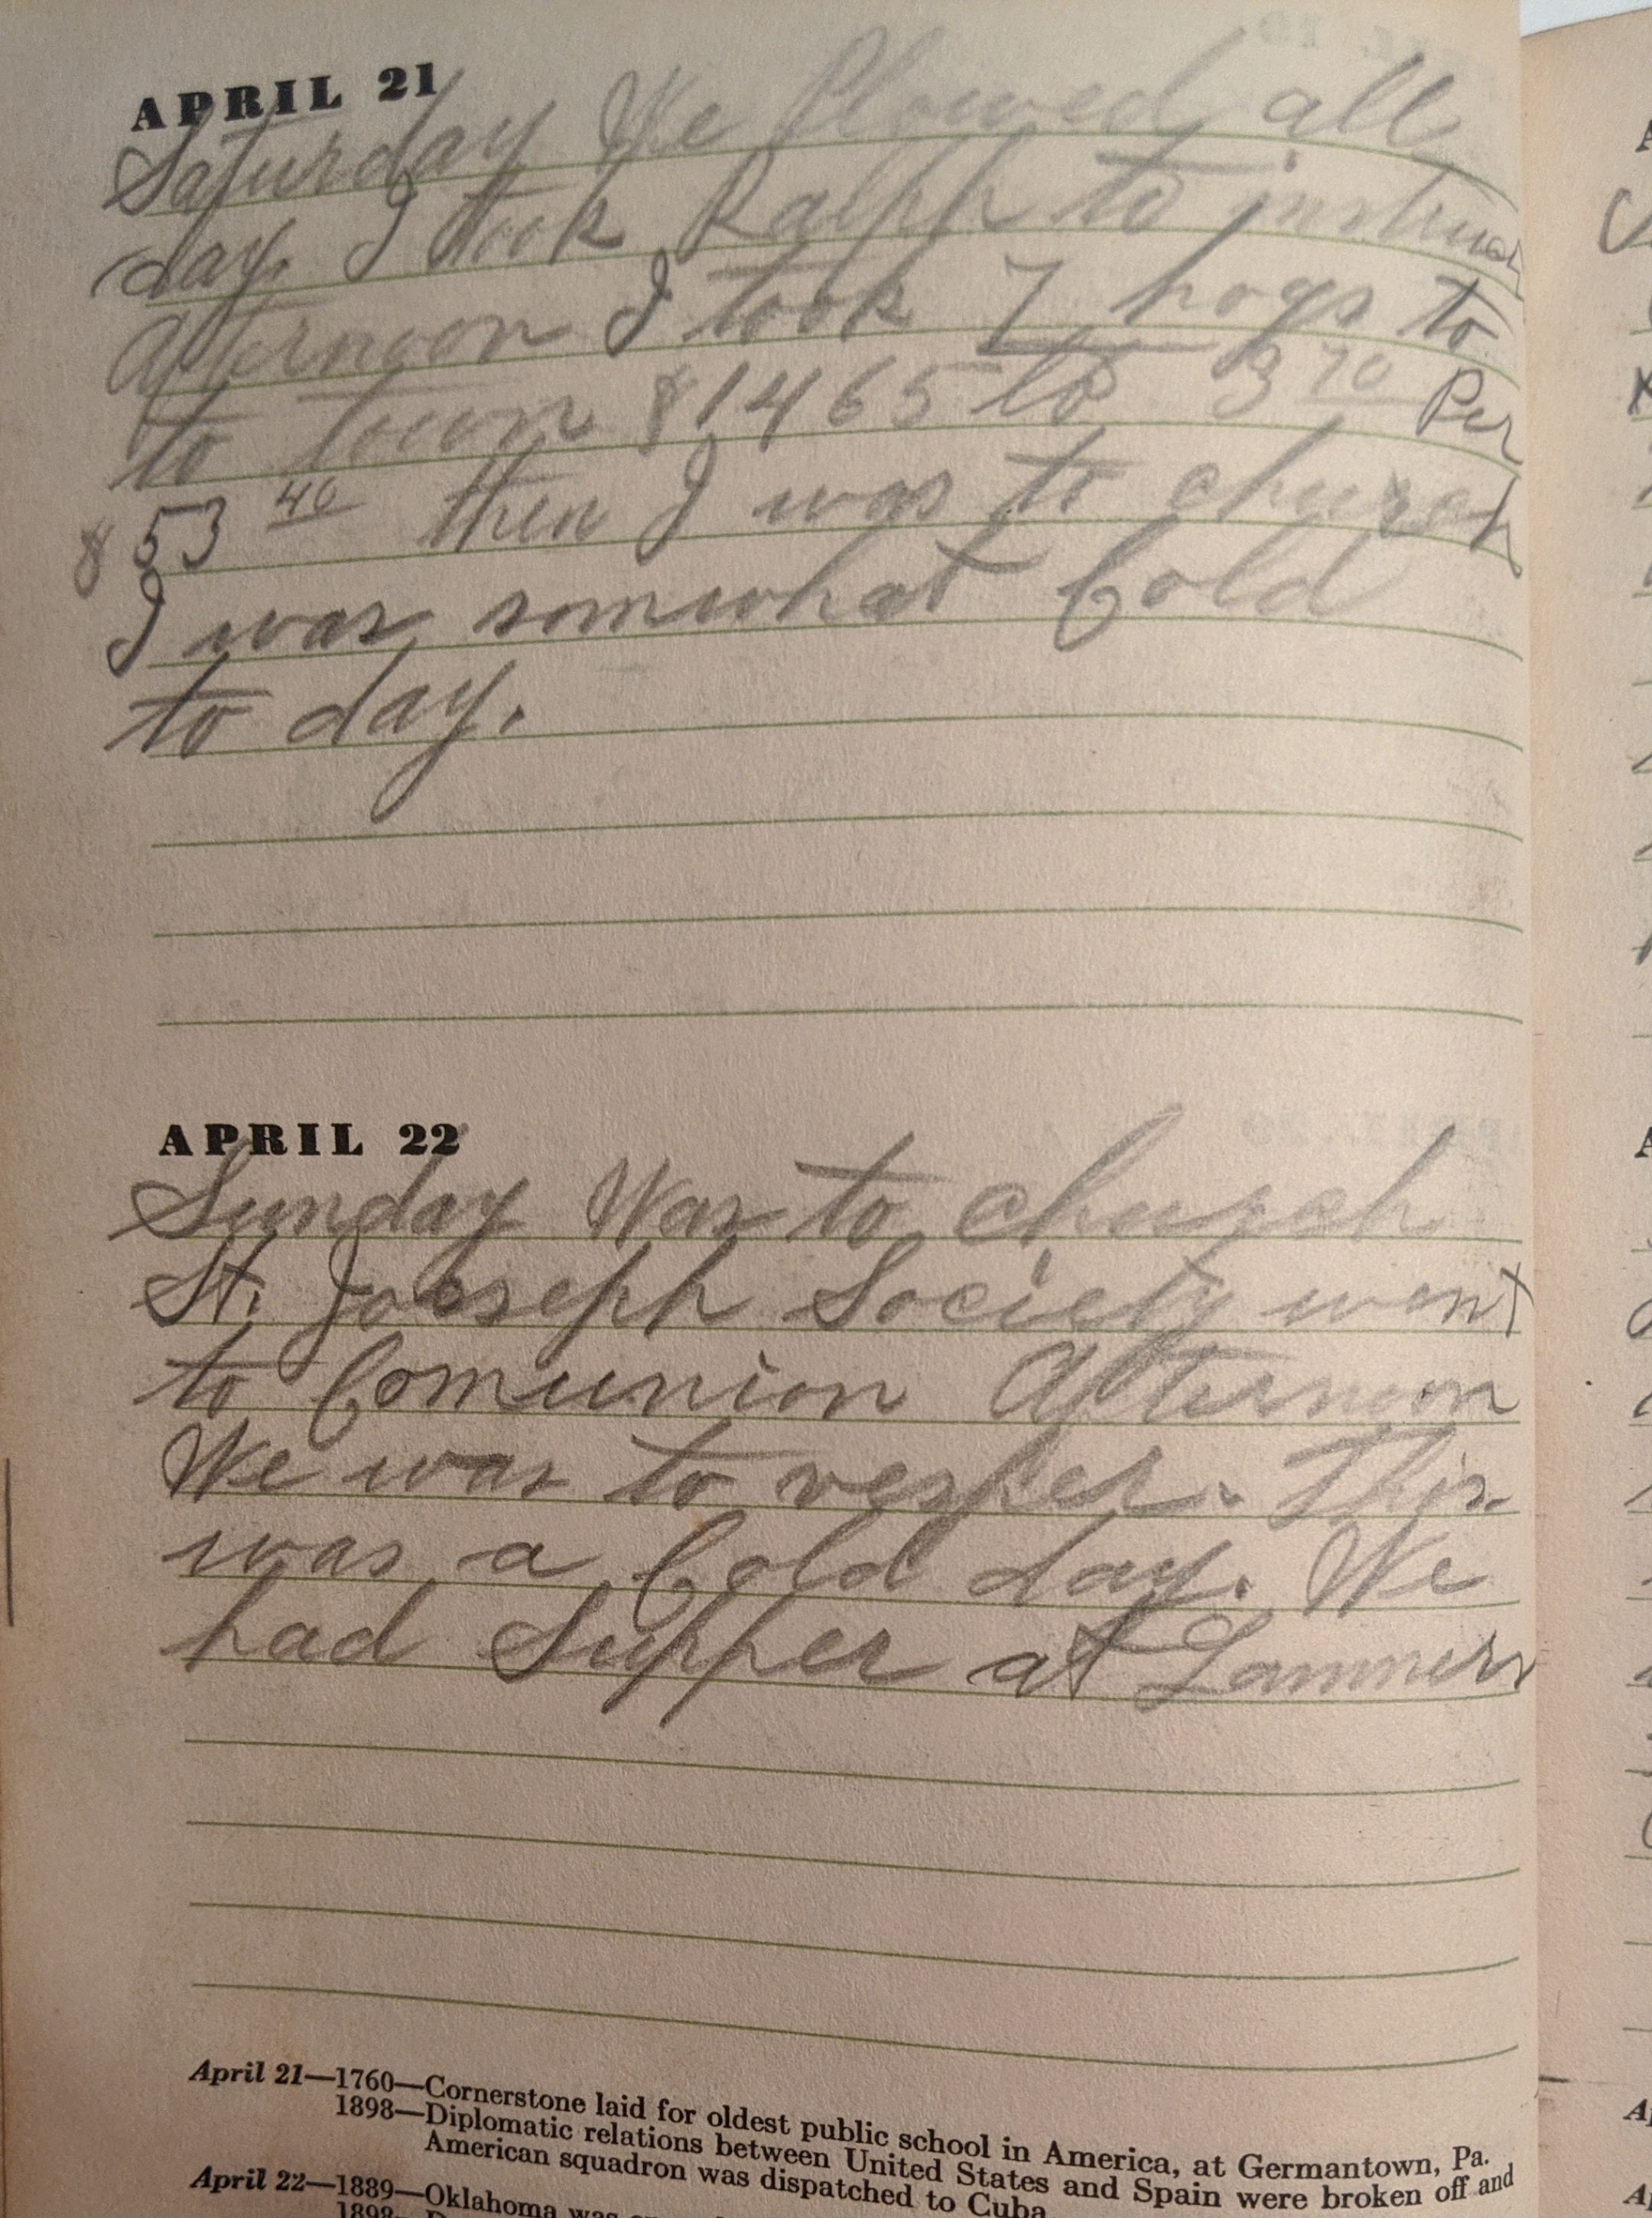 APRIL 21
Saturday We Plowed all
day. I took Ralph to
Afternoon I took 7 hogs to
to town $1465 lb 3 70 Per
$53 40 then I was to church
I was somwhat Cold
to day.
APRIL 22
Sunday Was to church
St. Joeseph Society went
to Comunion Afternoon
We was to vesper. This
was a Cold day. We
had Supper at Lammers
April 21—1760—Cornerstone laid for oldest public school in America, at Germantown, Pa.
1898—Diplomatic relations between United States and Spain were broken off and
American squadron was dispatched to Cuba.
April 22—1889—Oklahoma was
1898—